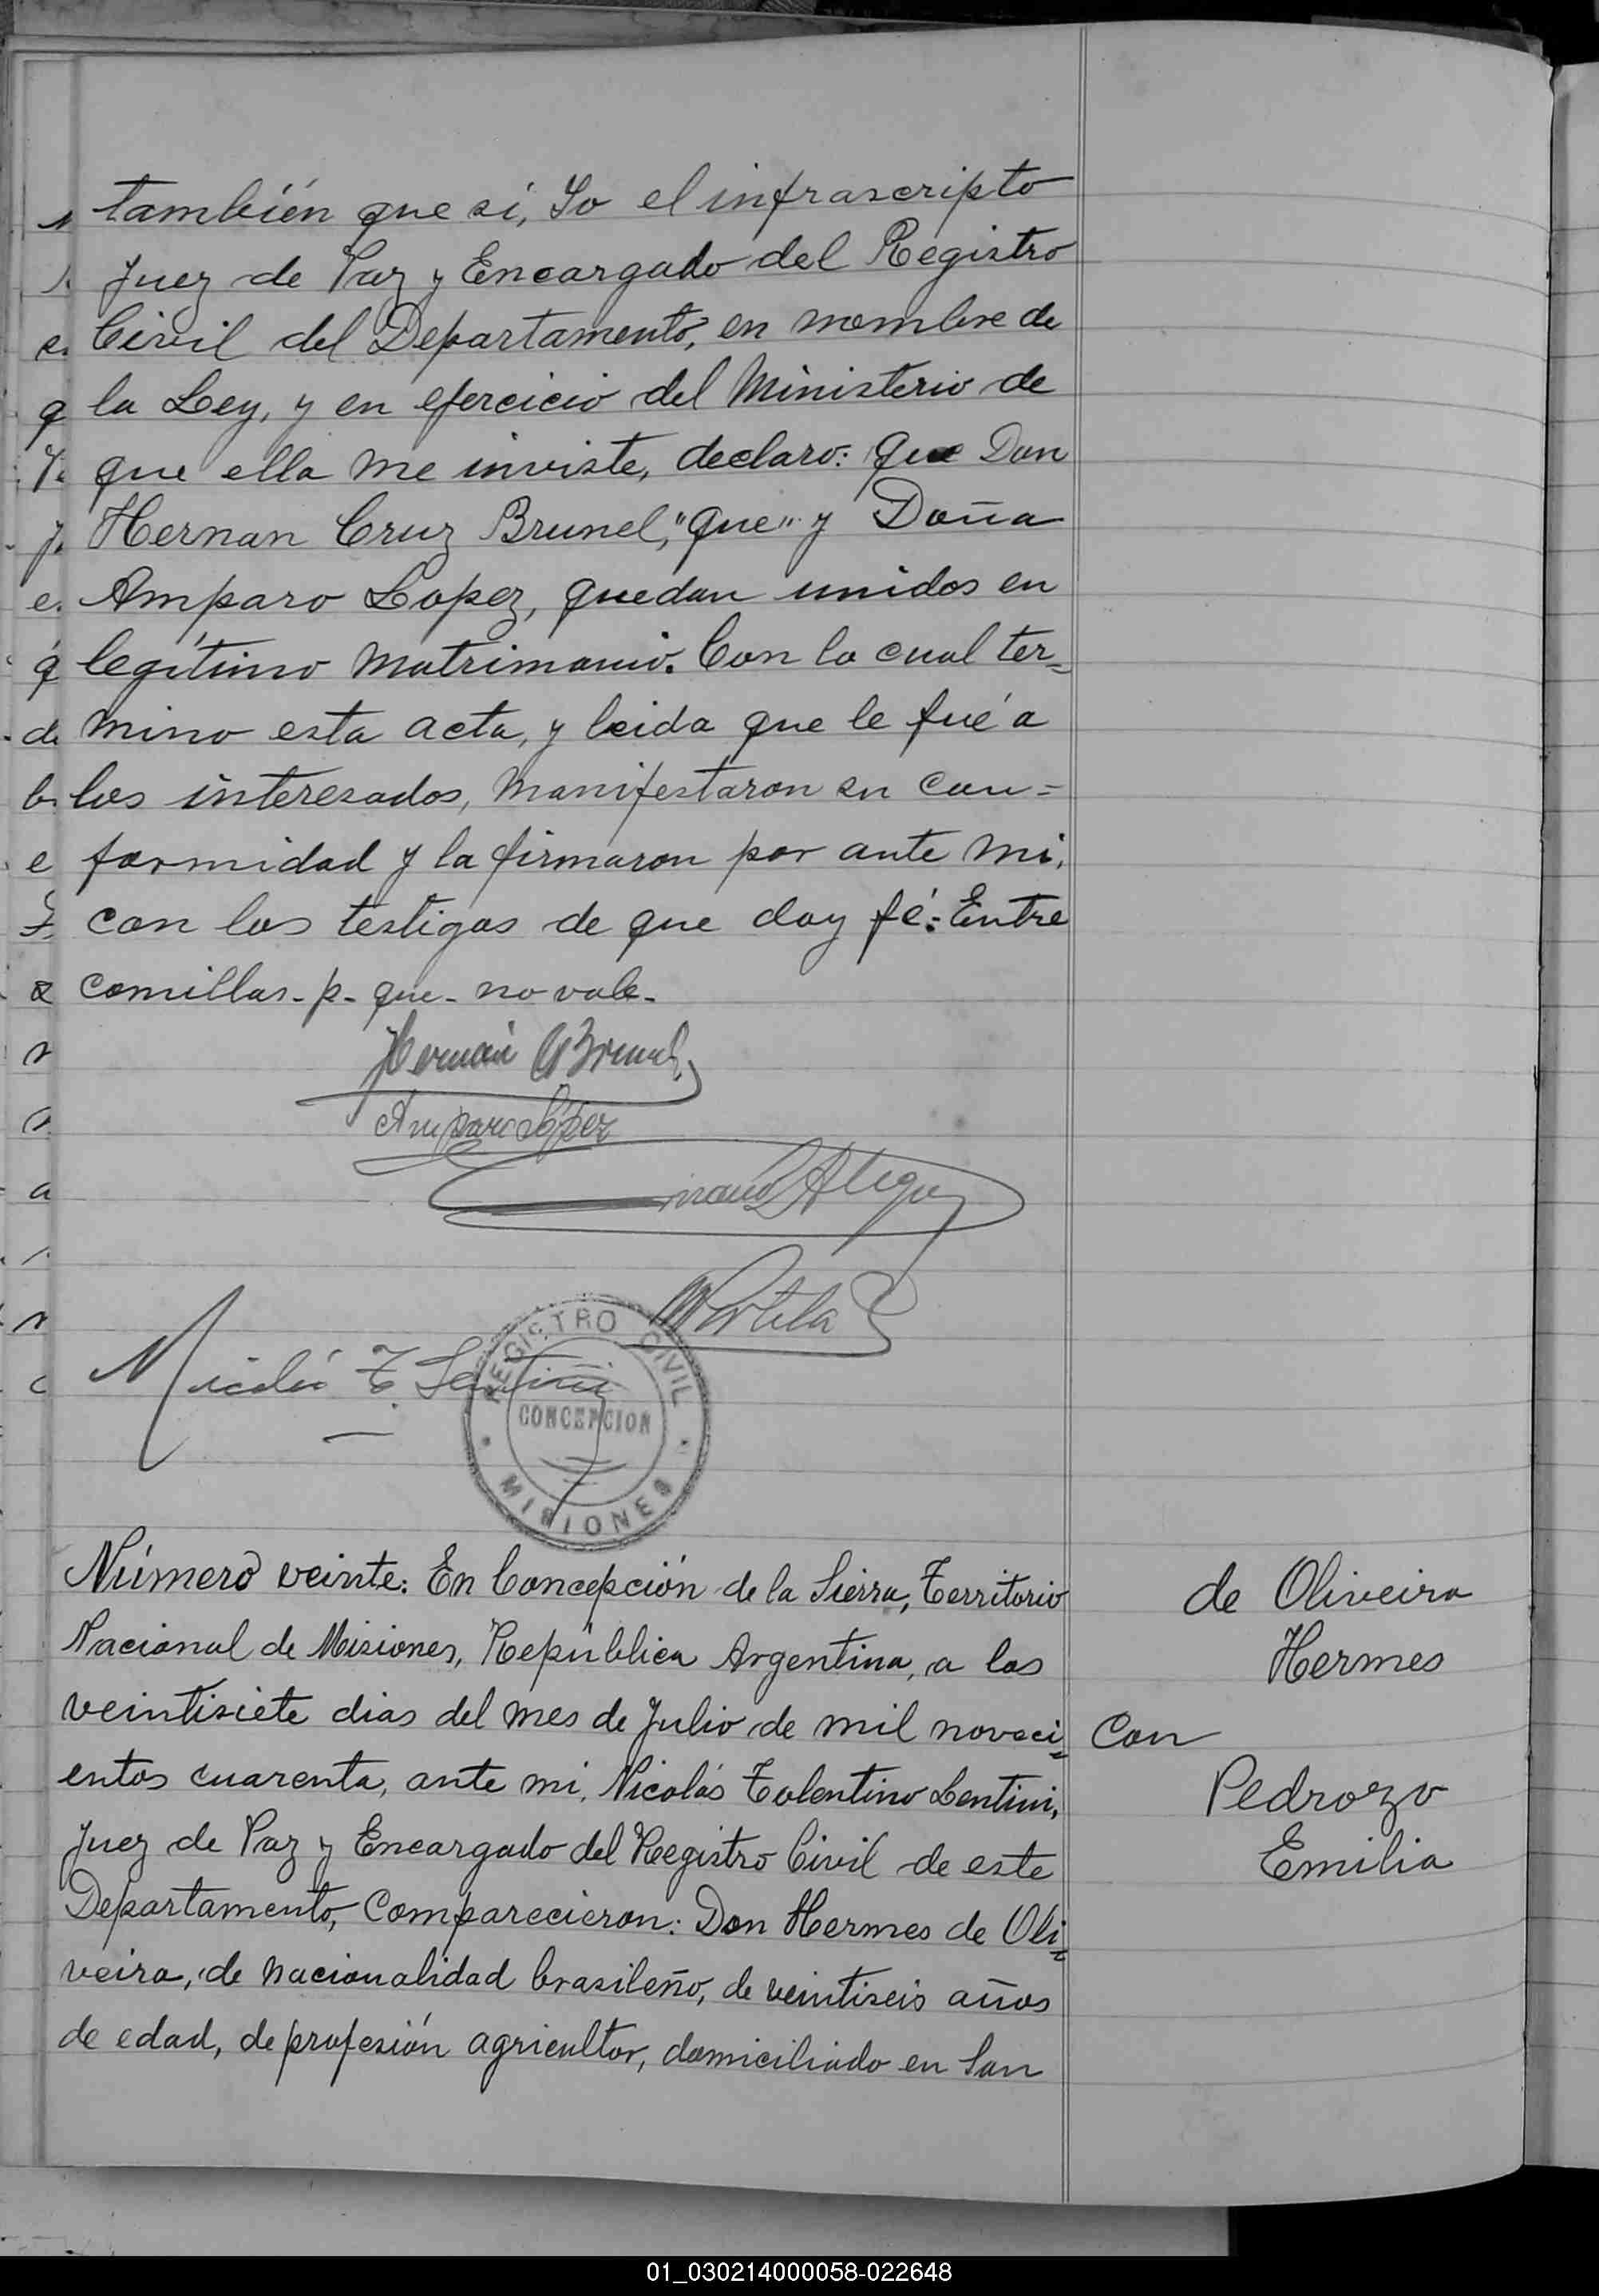 también que si, Yo el infrascripto
Juez de Paz y Encargado del Registro
Civil del Departamento, en nombre de
la Ley, y en ejercicio del Ministerio de
que ella me inviste, declaro: que Don
Hernan Cruz Brunel, "que" y Doña
Amparo Lopez, quedan unidos en
legítimo matrimonio. Con lo cual ter=
mino esta acta, y leida que le fué a
los interesados, manifestaron su con=
formidad y la firmaron por ante mi,
con los testigos de que doy fé:- Entre
comillas - p - que - no vale -
Hernán C Brunel
Amparo López
REGISTRO CIVIL
CONCEPCION
MISIONES
Número veinte: En Concepción de la Sierra, Territorio
Nacional de Misiones, República Argentina, a los
veintisiete dias del mes de Julio de mil noveci=
entos cuarenta, ante mi, Nicolás Tolentino Lentini,
Juez de Paz y Encargado del Registro Civil de este
Departamento, Comparecieron: Don Hermes de Oli=
veira, de nacionalidad brasileño, de veintiseis años
de edad, de profesión agricultor, domiciliado en San
de Oliveira
Hermes
Con
Pedrozo
Emilia
01_030214000058-022648